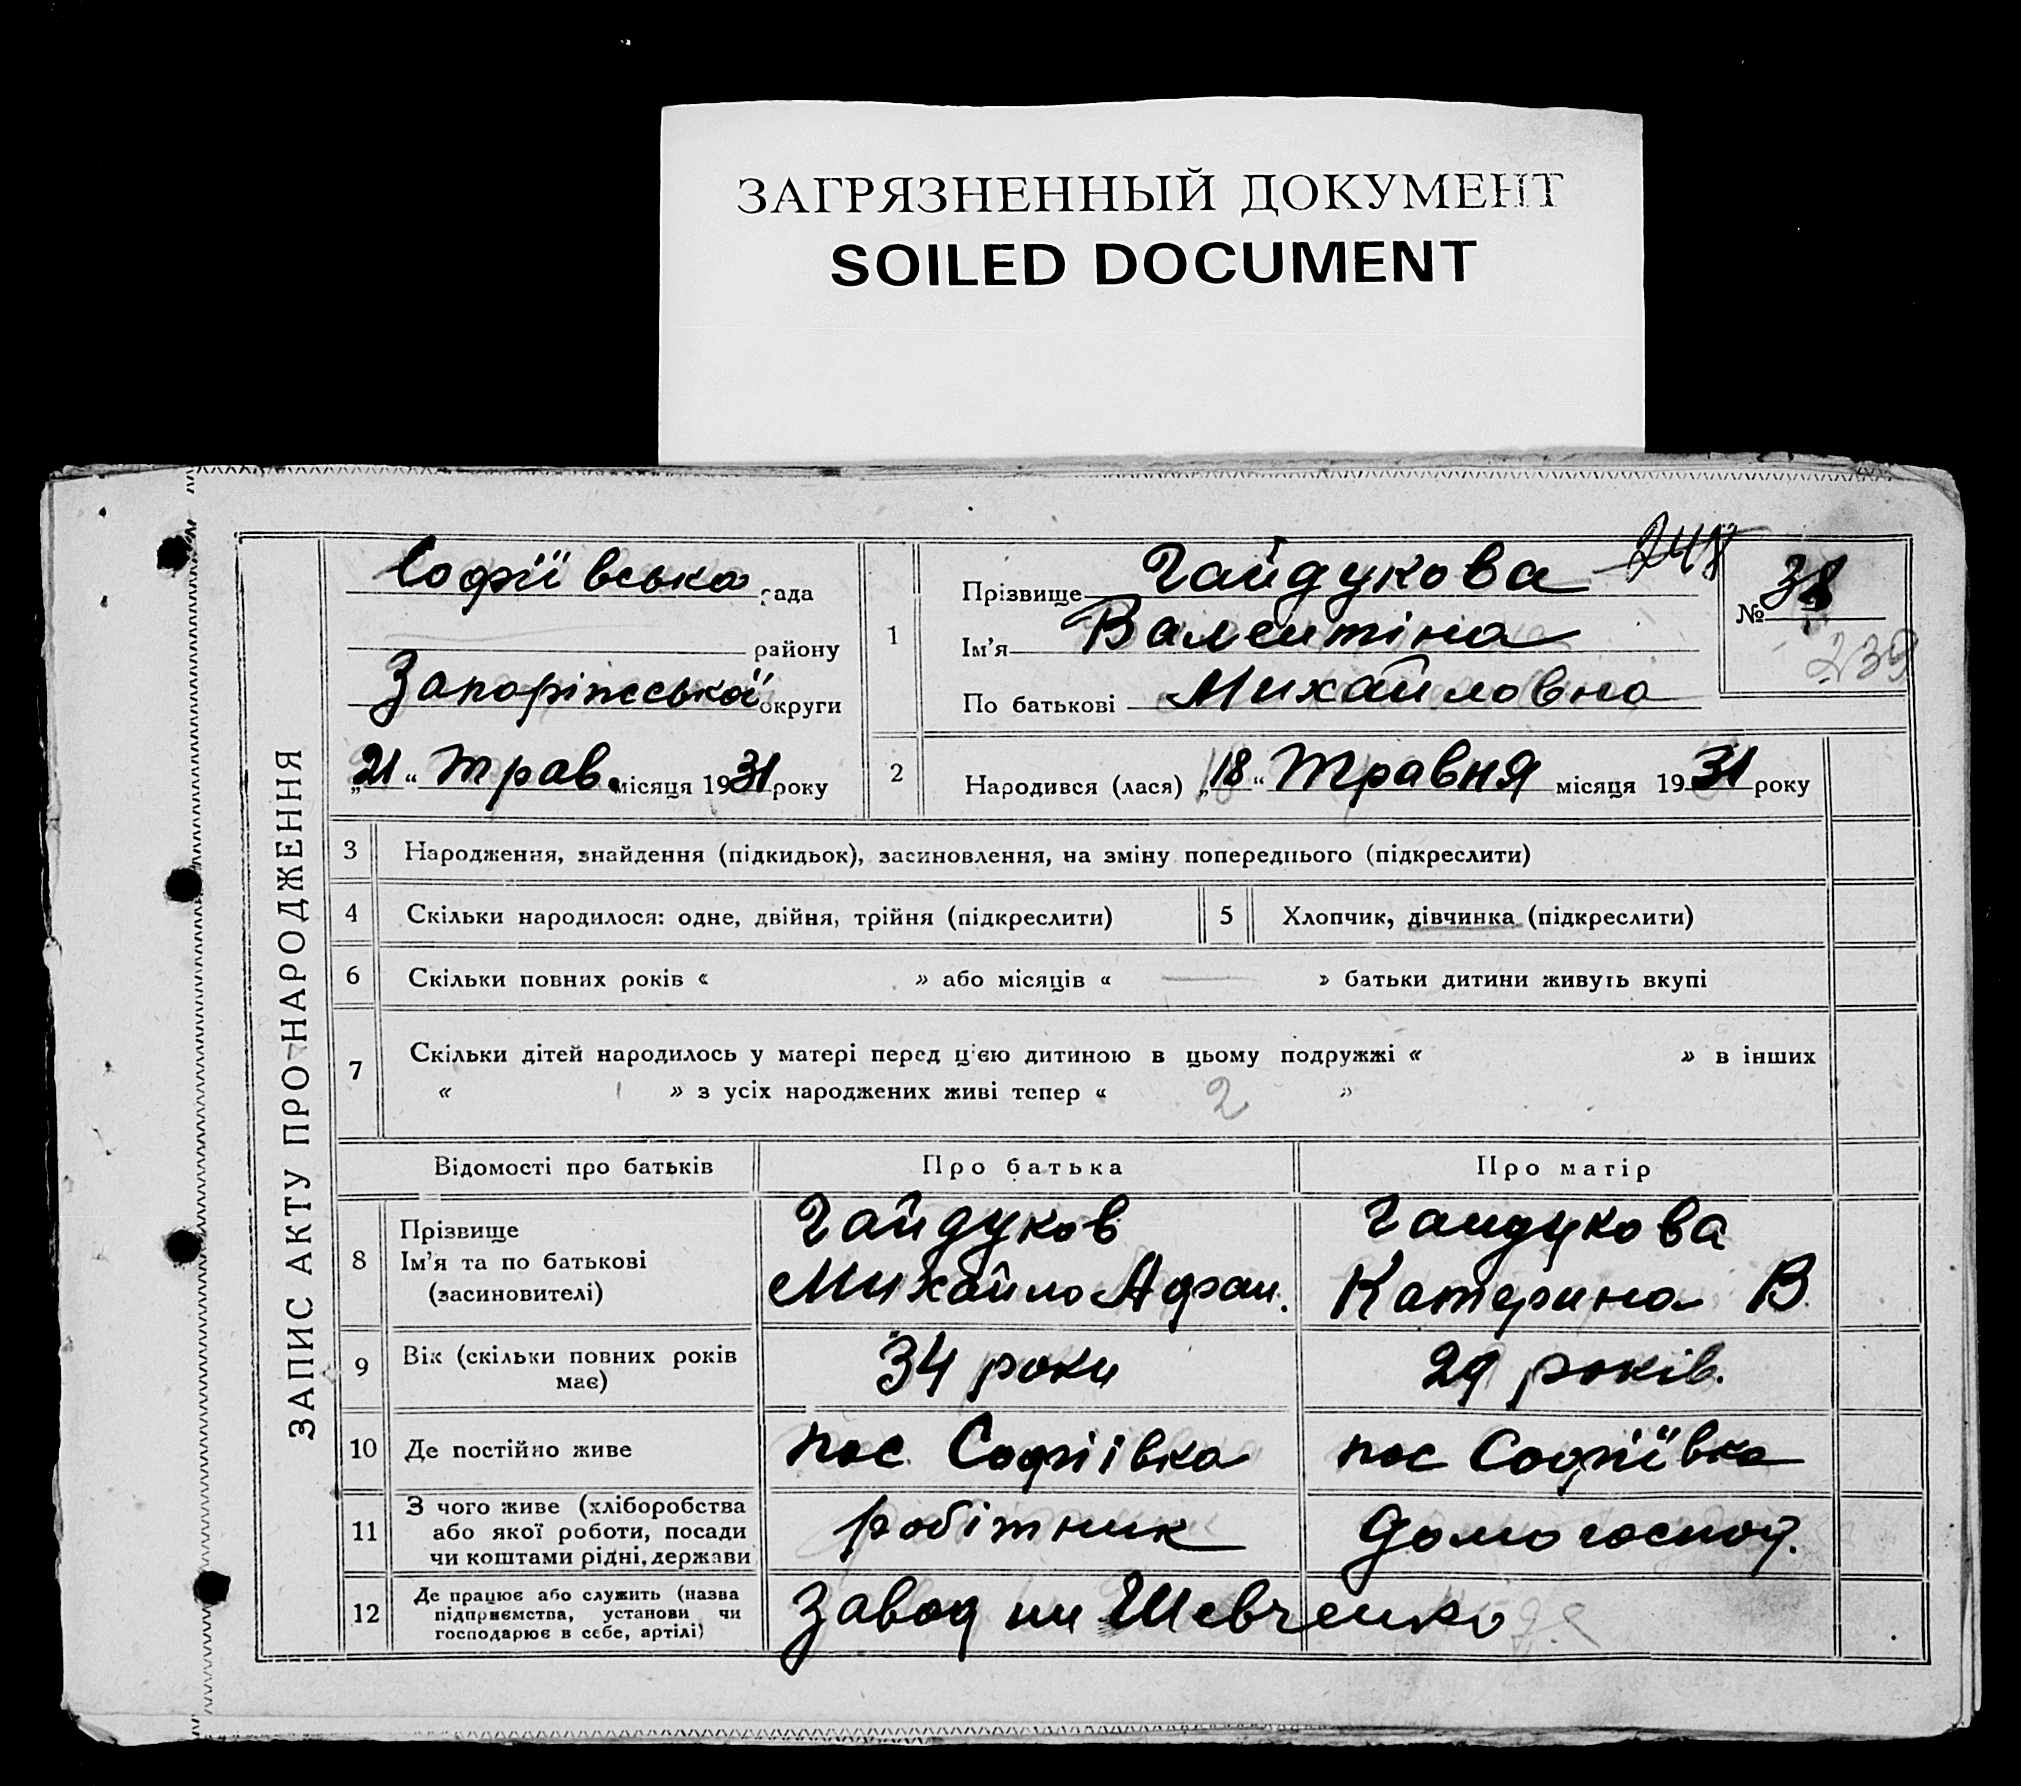 ЗАГРЯЗНЕННЫЙ ДОКУМЕНТ
SOILED DOCUMENT
ЗАПИС АКТУ ПРО НАРОДЖЕННЯ
Софіївська рада
району
Запоріжської округи
„21“ трав. місяця 1931 року
1
Прізвище Гайдукова
Ім’я Валентіна
По батькові Михайловна
248
№ 38
239
2
Народився (лася) „18“ Травня місяця 1931 року
3 Народження, знайдення (підкидьок), засиновлення, на зміну попереднього (підкреслити)
4 Скільки народилося: одне, двійня, трійня (підкреслити) 5 Хлопчик, дівчинка (підкреслити)
6 Скільки повних років « » або місяців « — » батьки дитини живуть вкупі
7 Скільки дітей народилось у матері перед ц‘єю дитиною в цьому подружжі « » в інших
« » з усіх народжених живі тепер « 2 »
Відомості про батьків Про батька Про матір
8
Прізвище
Ім’я та по батькові
(засиновителі)
Гайдуков
Михайло Афан.
Гаидукова
Катерина В.
9
Вік (скільки повних років
має)
34 роки
29 років.
10 Де постійно живе
пос. Софіівка
пос Софіївка
11
З чого живе (хліборобства
або якої роботи, посади
чи коштами рідні, держави
робітник
домогоспод.
12
Де працює або служить (назва
підприємства, установи чи
господарює в себе, артілі)
Завод им Шевченко